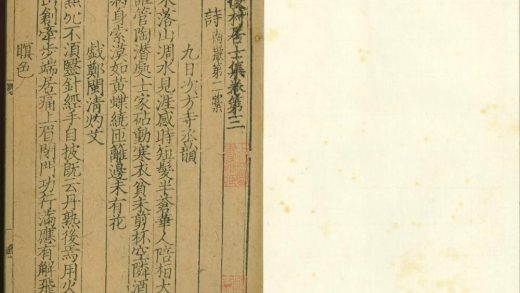 後村居士集卷第三
詩 南嶽第二藁
九日次方寺丞韻
落山凋水見涯感時短髮半蒼華人陪相大
管陶潛處士家砧動寒衣貧未剪杯空隣酒
病身索漠如黃蝶繞匝籬邊未有花
戲鄭閩清灼艾
不須醫針經手自披既云丹熟後焉用火
創牽步端居痛上眉閉門功行滿應有解飛
暝色